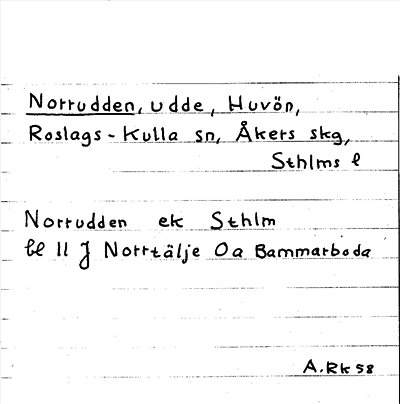 Norrudden, udde, Huvön,
Roslags-Kulla sn, Åkers skg,
Sthlms l
Norrudden ek Sthlm
bl 11 J Norrtälje Oa Bammarboda
A.Rk 58